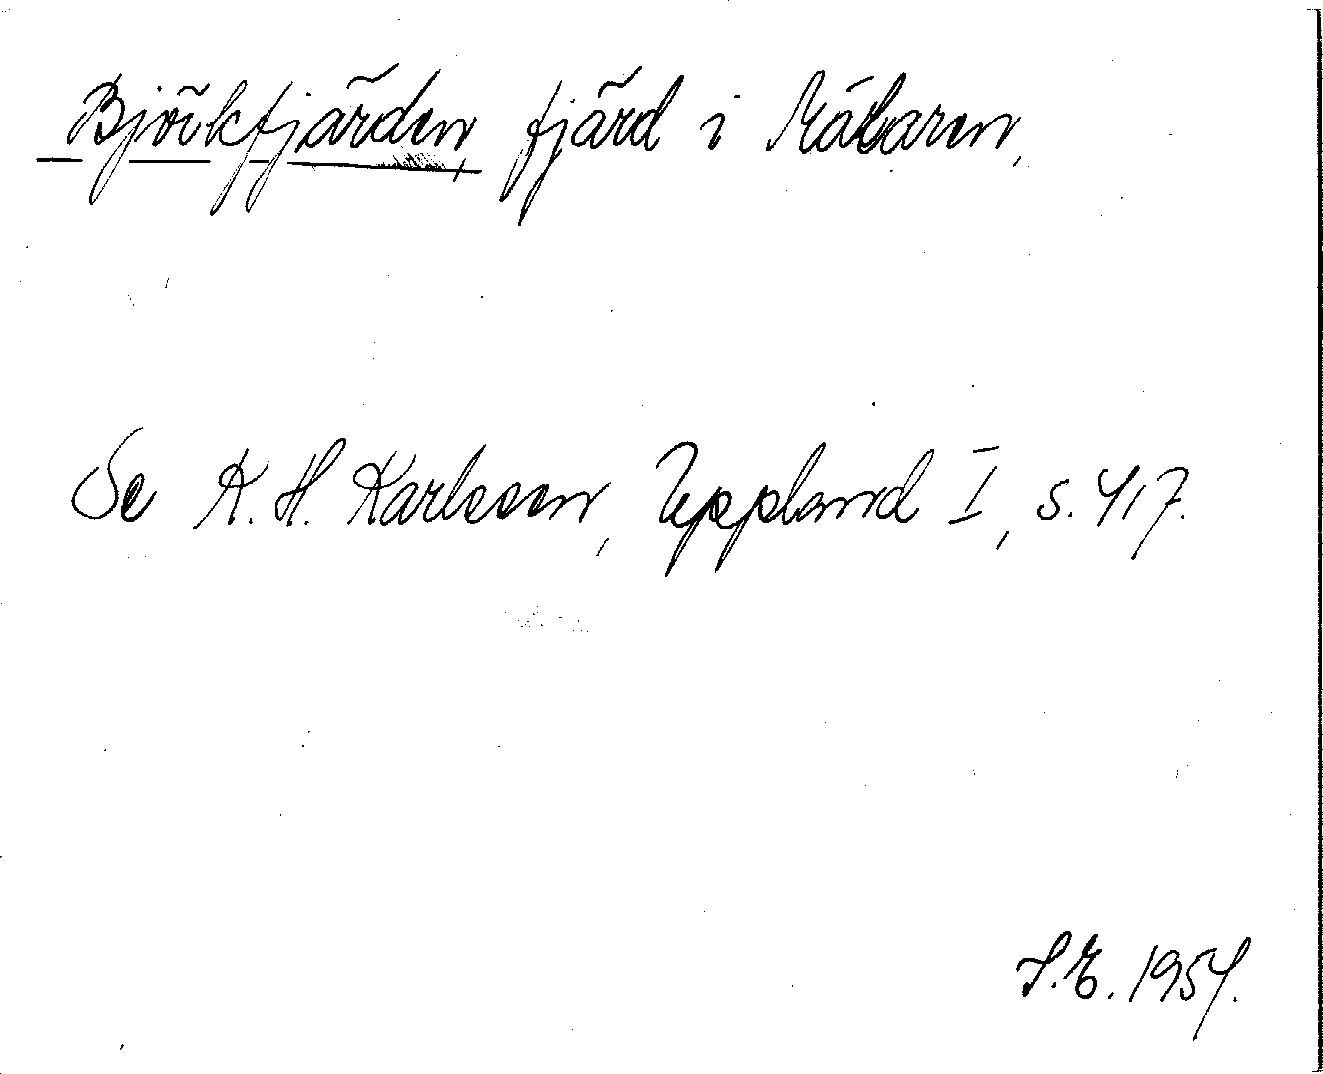 Björkfjärden, fjärd i Mälaren,
Se K. H. Karlsson, Uppland I, s. 417.
S. E. 1954.